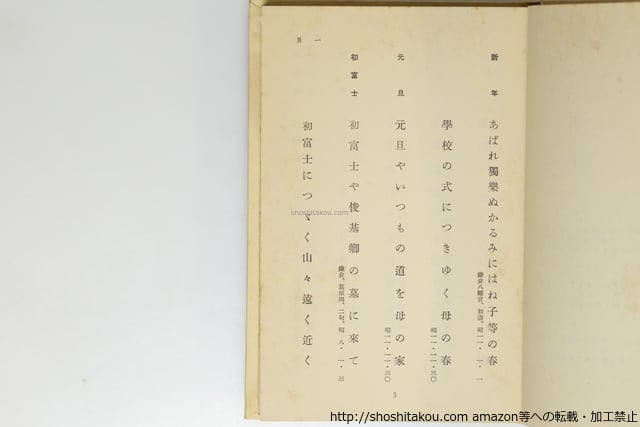 一月
新年
あばれ獨樂ぬかるみにはね子等の春
鎌倉八幡宮、初詣。昭一一・一・一
學校の式につきゆく母の春
昭一一・一一・三〇
元旦
元旦やいつもの道を母の家
昭一一・一一・三〇
初富士
初富士や俊基卿の墓に來て
鎌倉、葛原岡、二句。昭八・一・三
初富士につゞく山々遠く近く
3
shoshitakou.com
http://shoshitakou.com amazon等への転載・加工禁止